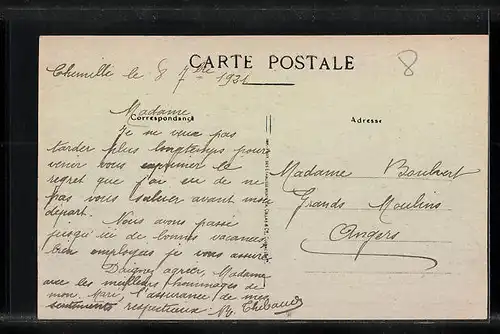 CARTE POSTALE
8
Chemillé le 8 7bre 1931
Correspondance
Adresse
Madame
Je ne veux pas
tarder plus longtemps pour
venir vous exprimer le
regret que j'ai eu de ne
pas vous saluer avant mon
départ.
Nous avons passé
jusqu'ici de bonnes vacances
bien employées je vous assure.
Daignez agréer, Madame
avec les meilleurs hommages de
mon Mari, l'assurance de mes
sentiments respectueux. Thibaud
Madame Boulvert
Grands Moulins
Angers